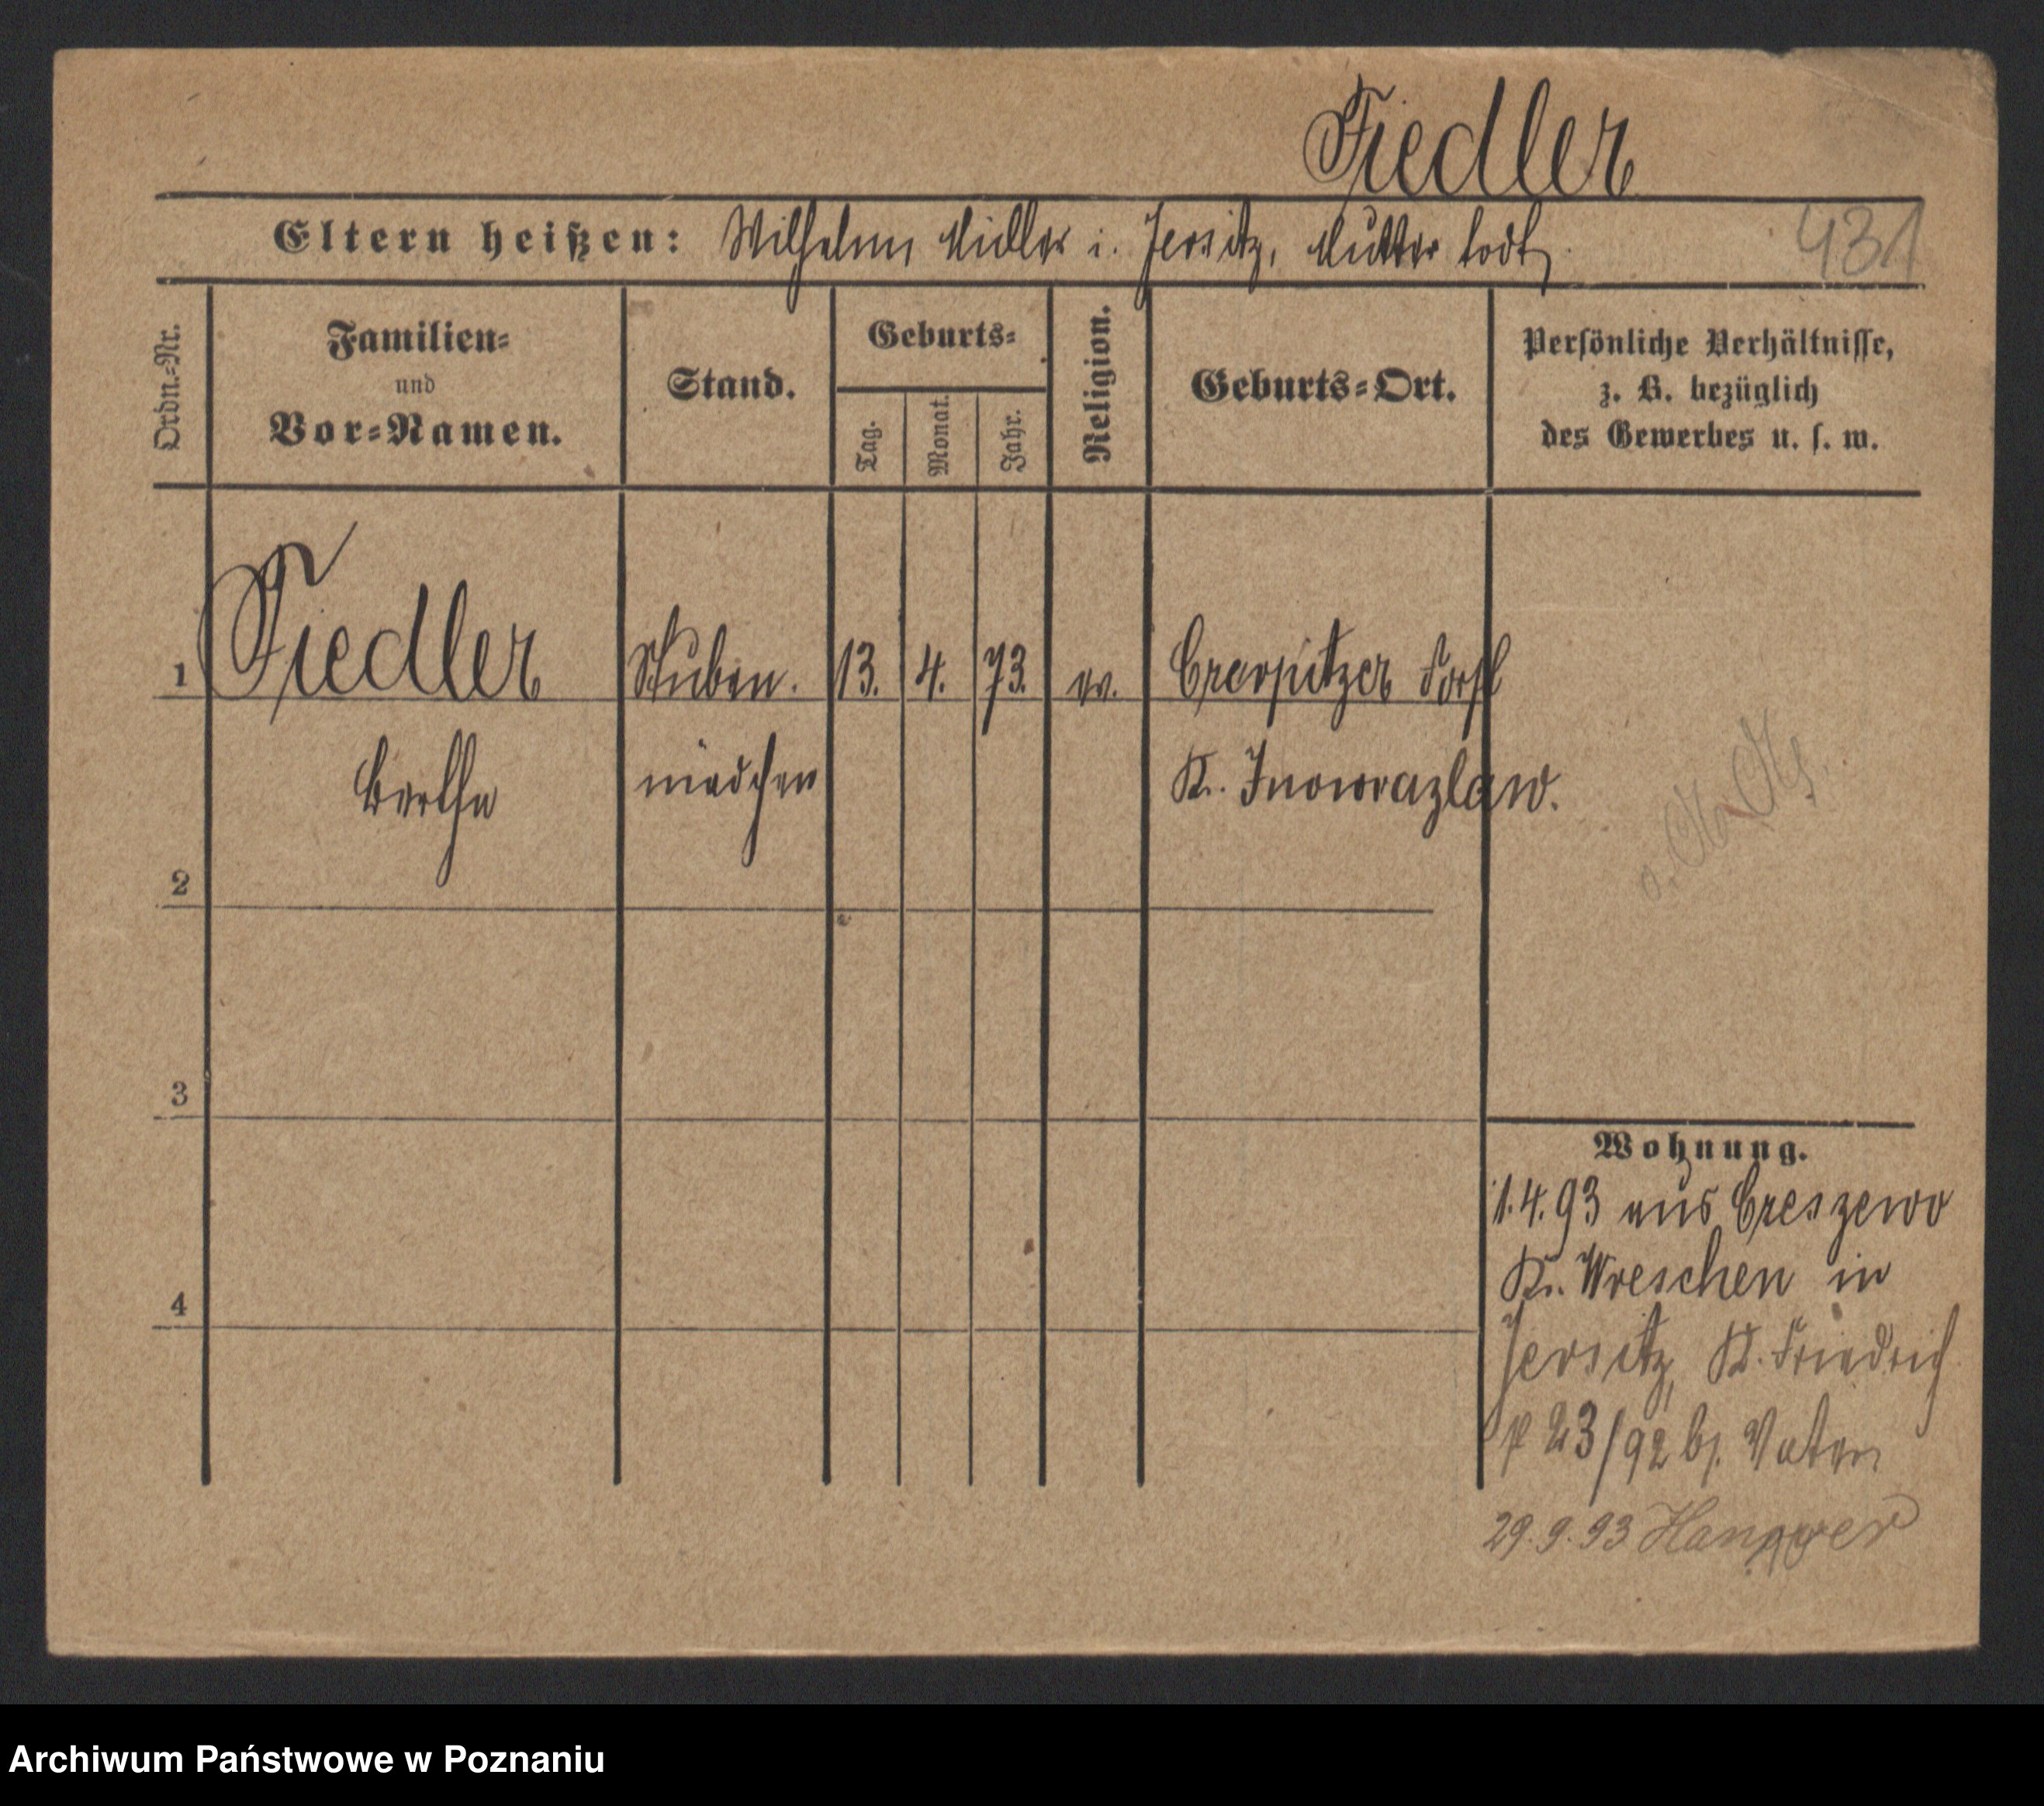 Fiedler
431
Eltern heißen: Wilhelm Müller i. Jersitz, Mutter todt
Ordn.-Nr.
Familien- und Vor-Namen.
Stand.
Geburts-
Tag. Monat. Jahr.
Religion.
Geburts-Ort.
Persönliche Verhältnisse,
z. B. bezüglich
des Gewerbes u. s. w.
1 Fiedler Stuben. 13. 4. 73. ev. Forst
Bertha mädchen K. Inowrazlaw.
2
3
4
Wohnung.
1.4.93 aus
K. Wreschen in
Jersitz, K. Friedrich
23/92 b. Vater
29.9.93
Archiwum Państwowe w Poznaniu